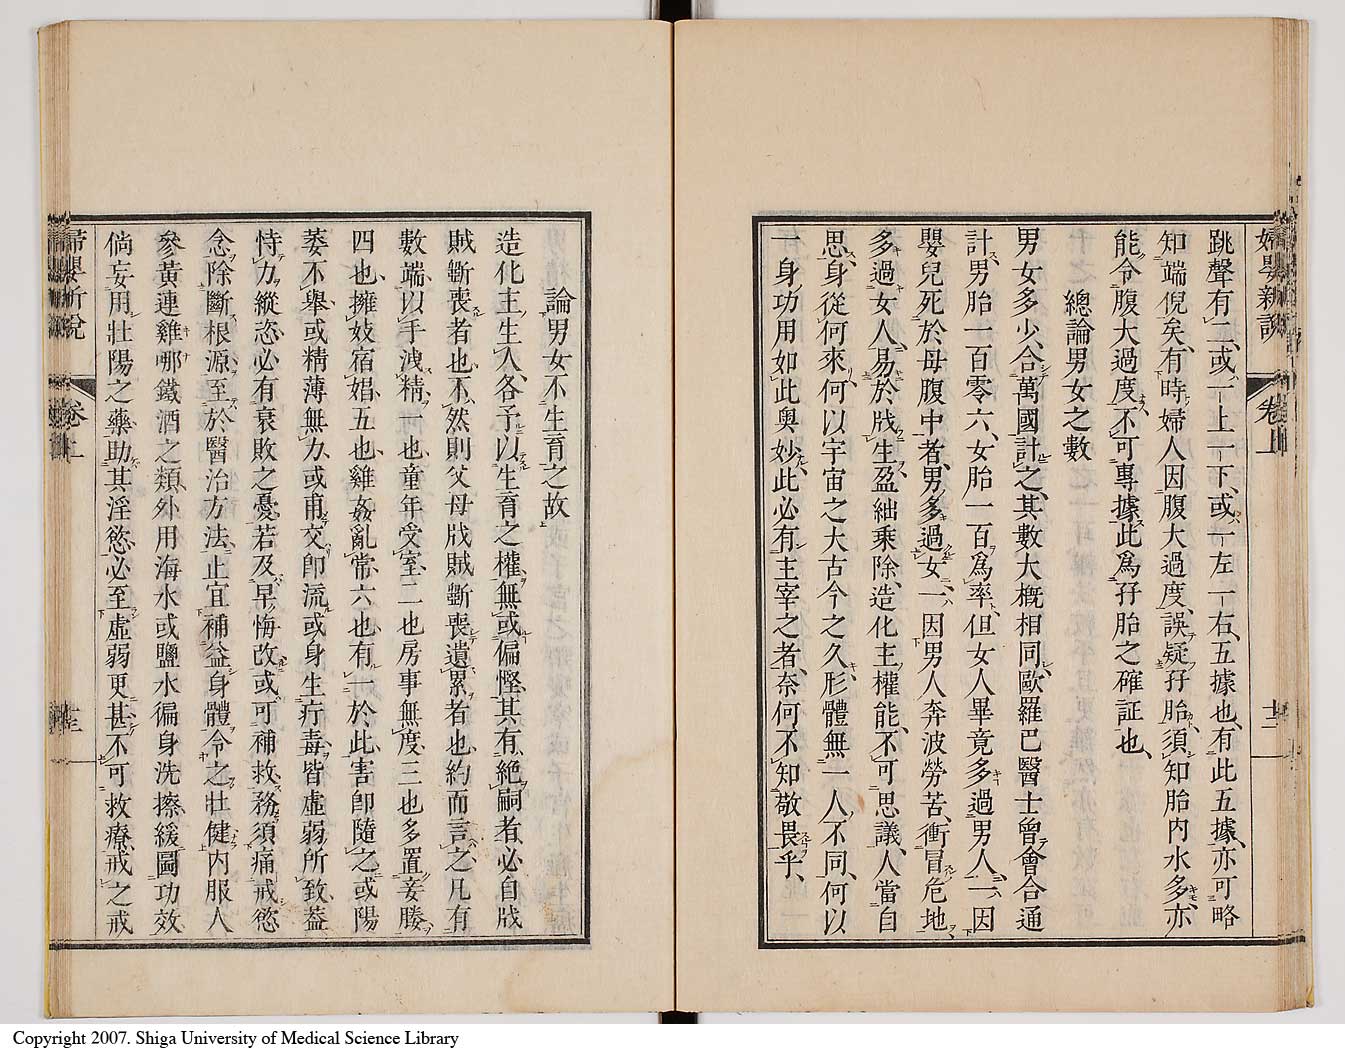 婦嬰新說 卷上 十二
跳聲有二、或一上一下、或一左一右、五據也、有此五據、亦可略
知端倪矣、有時婦人因腹大過度、誤疑孖胎、須知胎内水多、亦
能令腹大過度、不可專據此爲孖胎之確証也、
總論男女之數
男女多少、合萬國計之、其數大概相同、歐羅巴醫士曾會合通
計、男胎一百零六、女胎一百爲率、但女人畢竟多過男人、一因
嬰兒死於母腹中者、男多過女、一因男人奔波勞苦、衝冒危地、
多過女人、易於戕生、盈絀乘除、造化主權能、不可思議、人當自
思、身從何來、何以宇宙之大、古今之久、形體無一人不同、何以
一身功用如此奥妙、此必有主宰之者、奈何不知敬畏乎、
論男女不生育之故
造化主生人、各予以生育之權、無或偏慳、其有絶嗣者、必自戕
賊斲喪者也、不然則父母戕賊斲喪遺累者也、約而言之、凡有
數端、以手洩精一也、童年受室二也、房事無度三也、多置妾媵、
四也、擁妓宿娼五也、雞姦亂常六也、有一於此、害卽隨之、或陽
萎不舉、或精薄無力、或甫交卽流、或身生疔毒、皆虛弱所致、葢
恃力縱恣、必有衰敗之憂、若及早悔改、或可補救、務須痛戒慾
念、除斷根源、至於醫治方法、止宜補益身體、令之壯健、内服人
參黃連雞哪鐵酒之類、外用海水或鹽水徧身洗擦、緩圖功效
倘妄用壯陽之藥、助其淫慾、必至虛弱更甚、不可救療、戒之戒
婦嬰新說 卷上